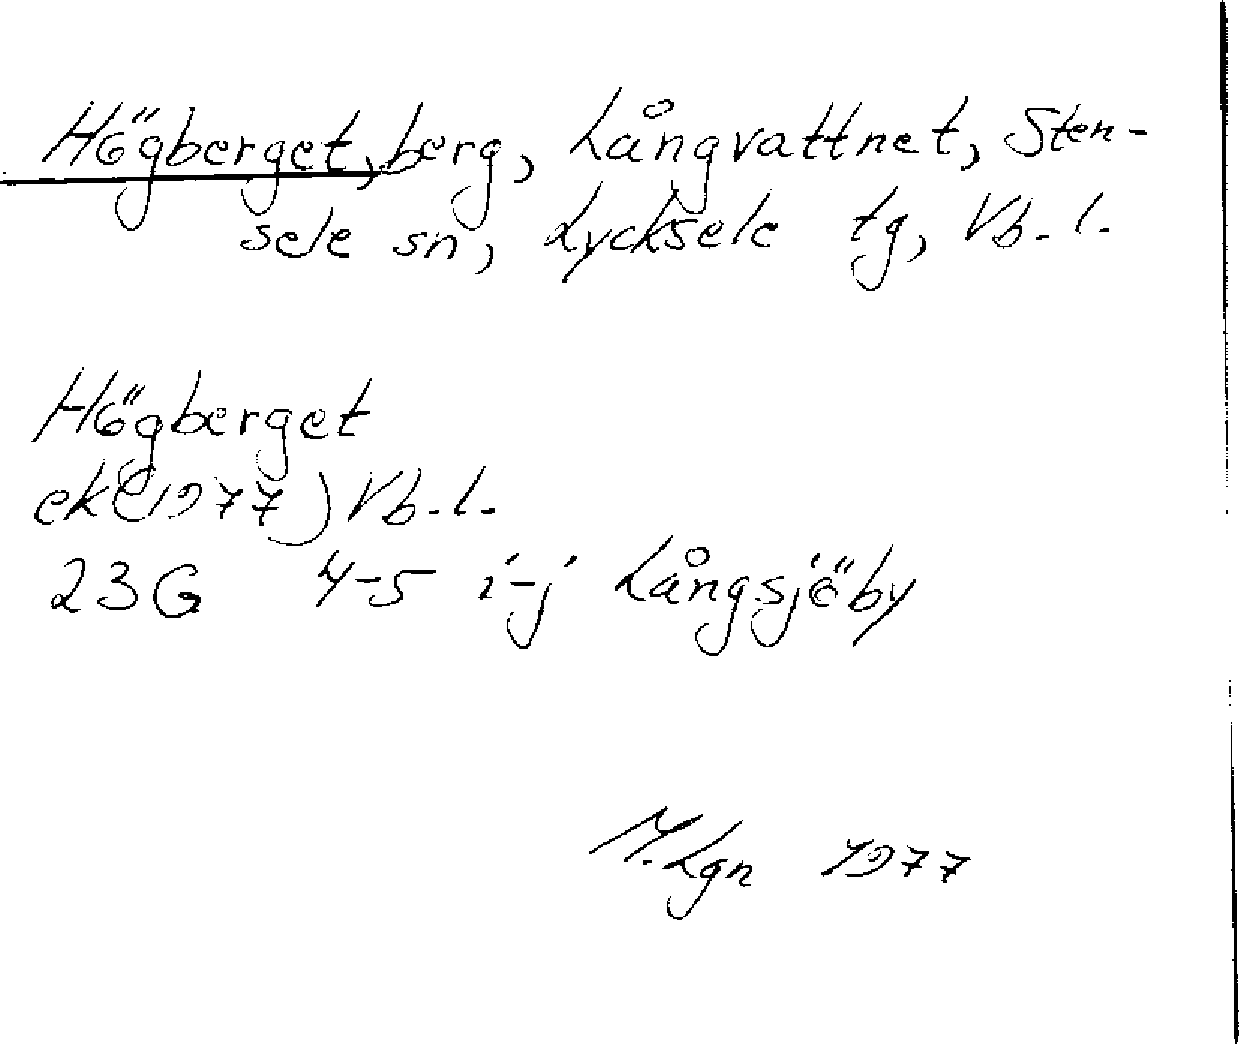 Högberget, berg, Långvattnet, Sten-
sele sn, Lycksele tg, Vb. l.
Högberget
ek (1977) Vb. l.
23G 4-5 i-j Långsjöby
M. Lgn 1977